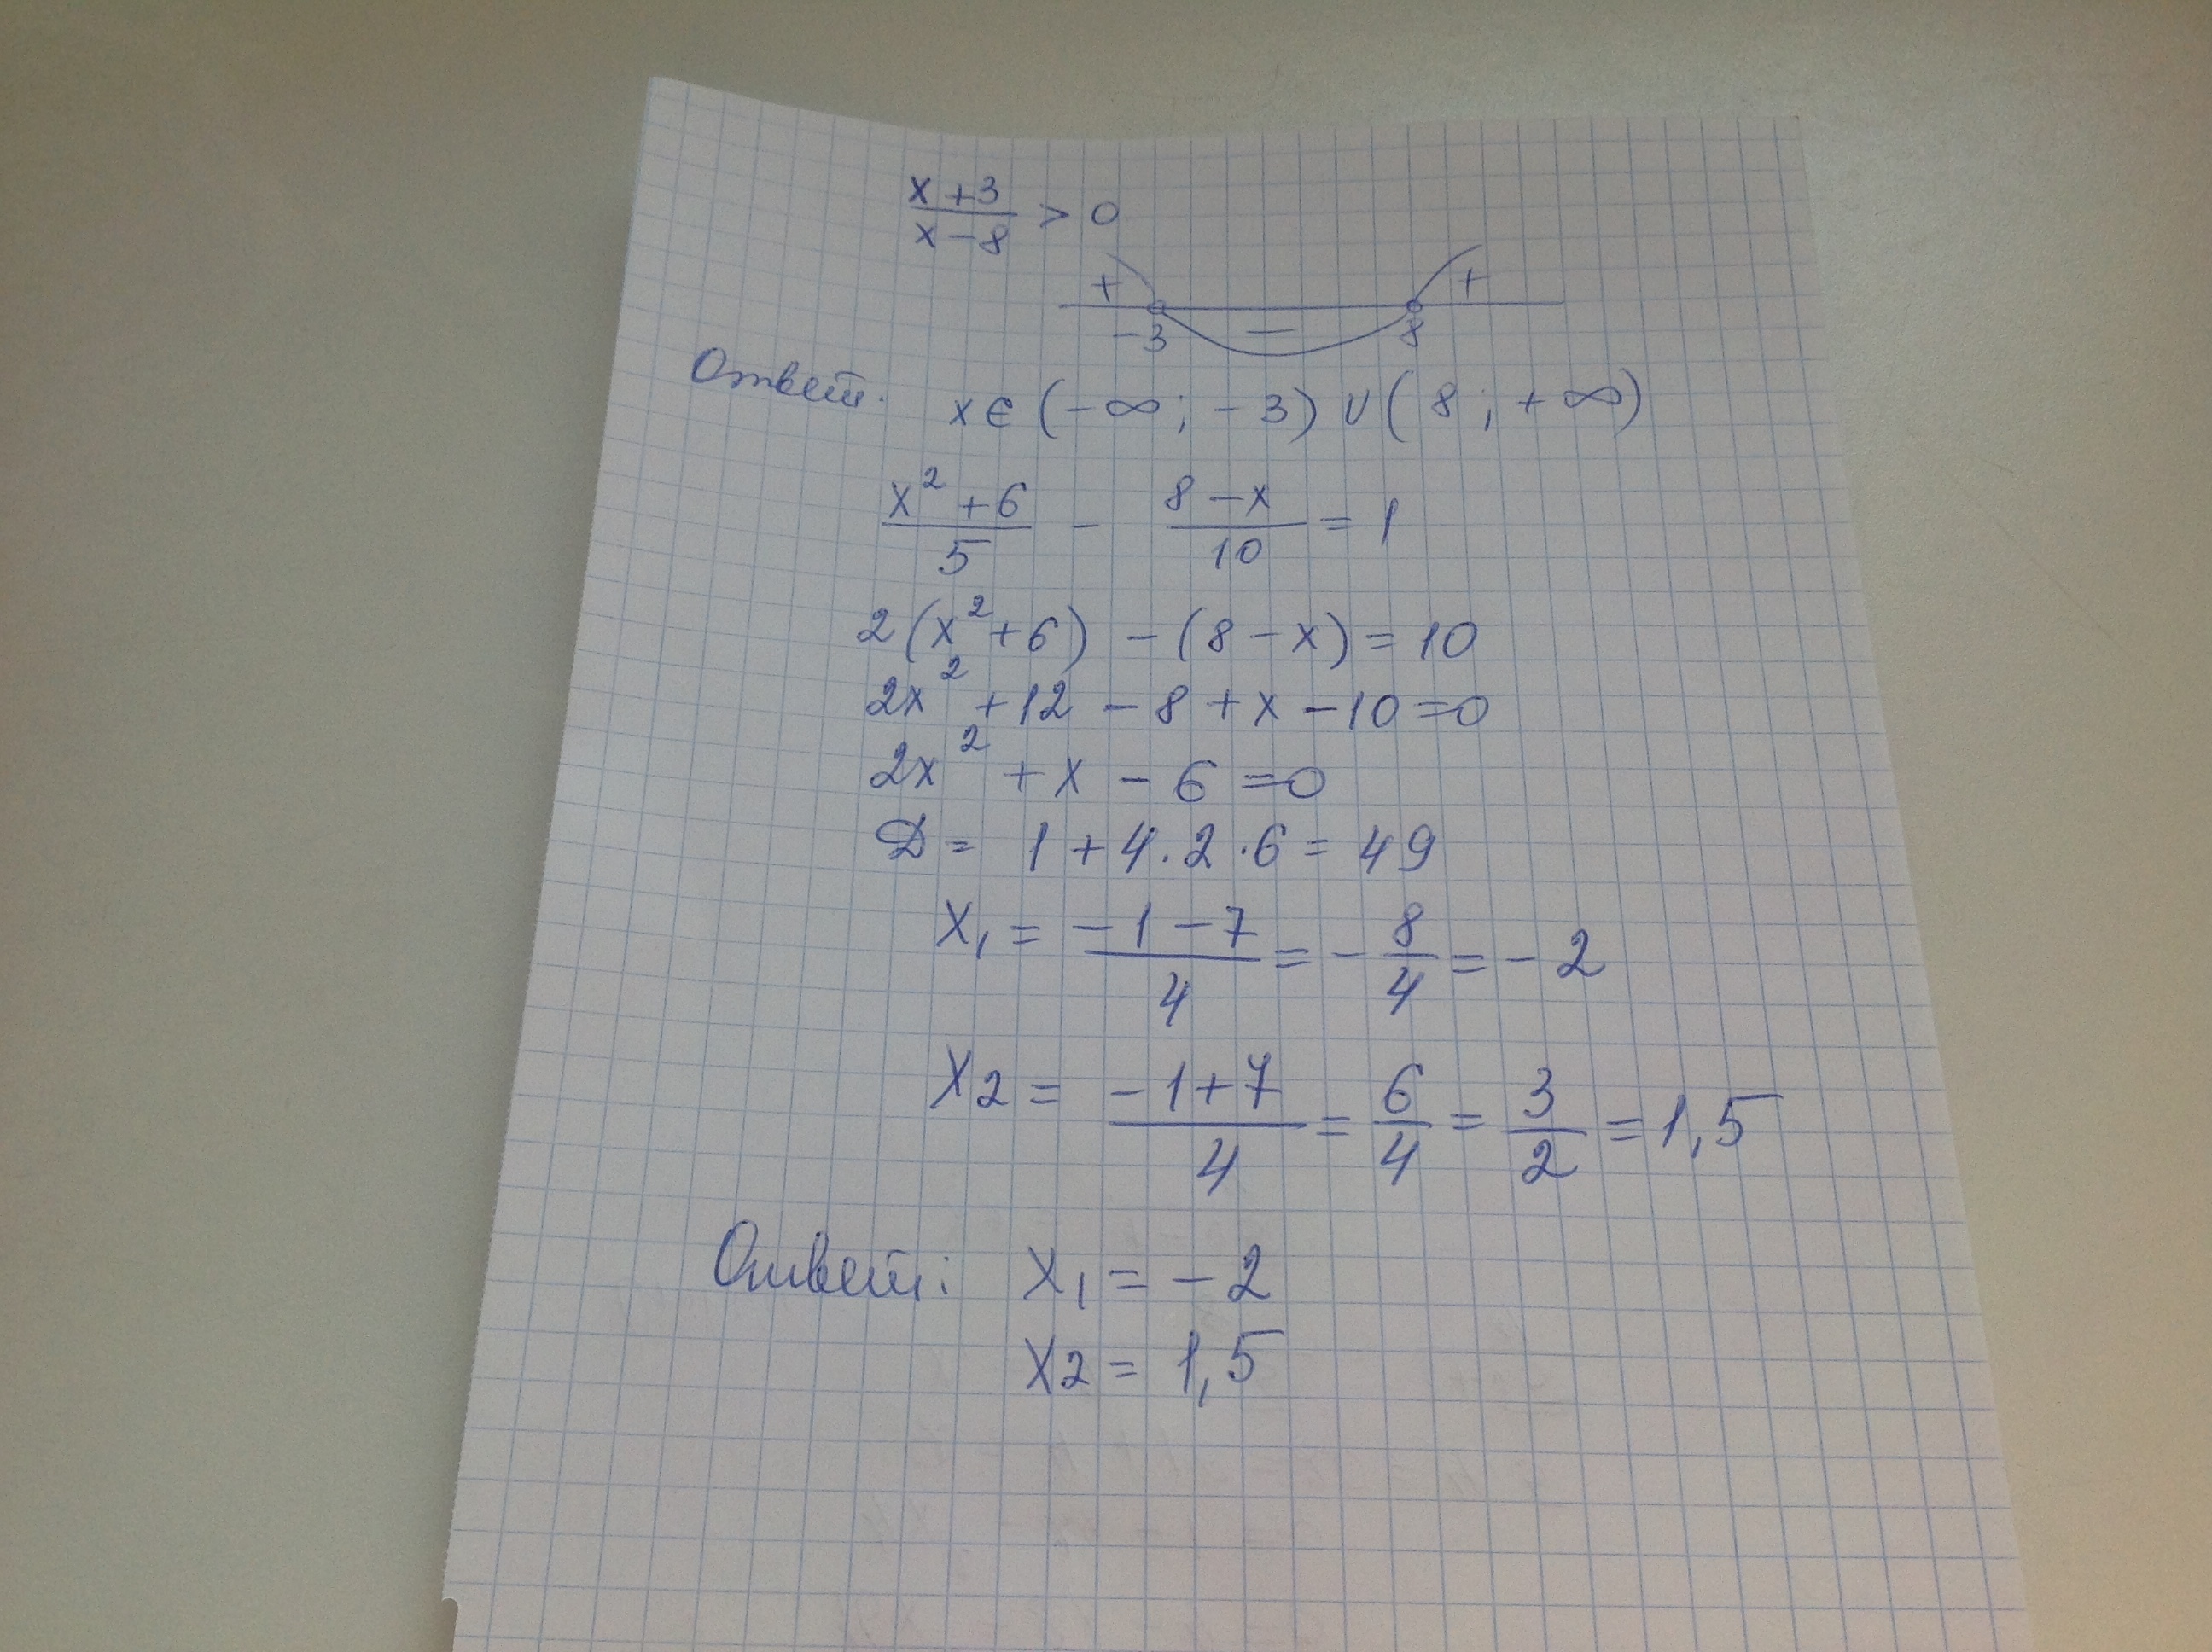 x+3/x-8 > 0
+ - +
-3 8
Ответ. x∈(-∞; -3)∪(8; +∞)
x²+6/5 - 8-x/10 = 1
2(x²+6) - (8-x) = 10
2x²+12-8+x-10=0
2x²+x-6=0
D = 1+4·2·6=49
x₁ = -1-7/4 = -8/4 = -2
x2 = -1+7/4 = 6/4 = 3/2 = 1,5
Ответ: x₁ = -2
x2 = 1,5